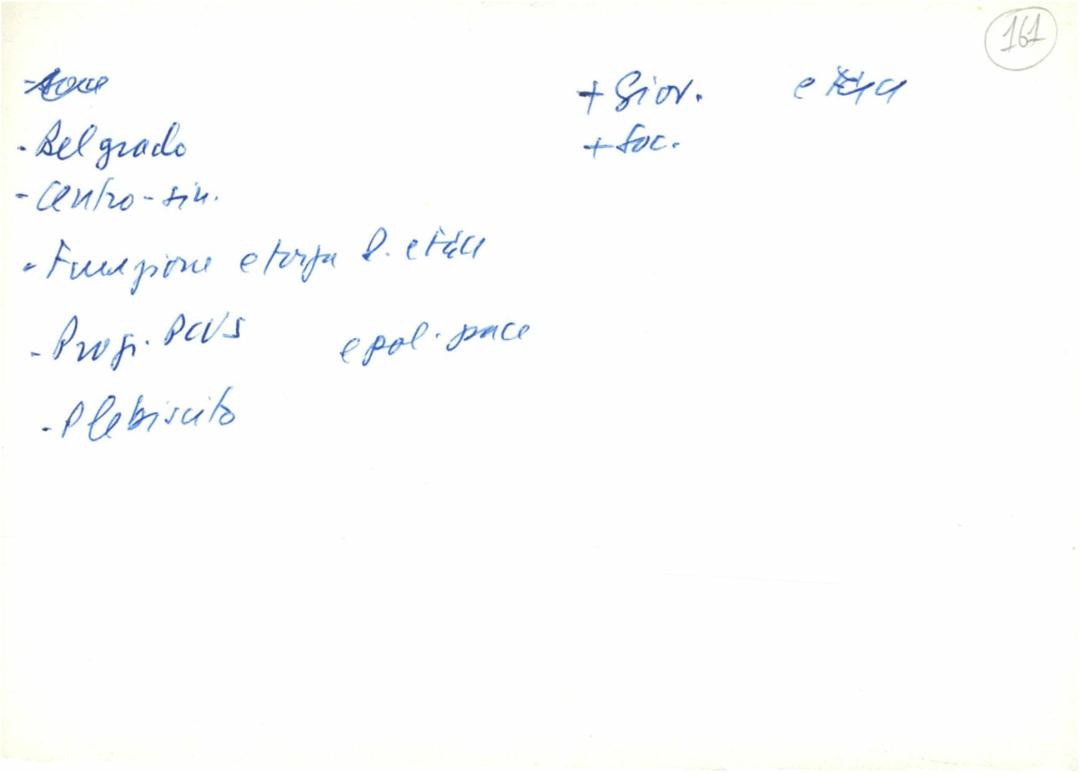 161
- Belgrado
- Centro-sin.
- Funzione e forza P. e
- Progr. PCUS e pol. pace
- Plebiscito
+ Giov. e
+ Soc.